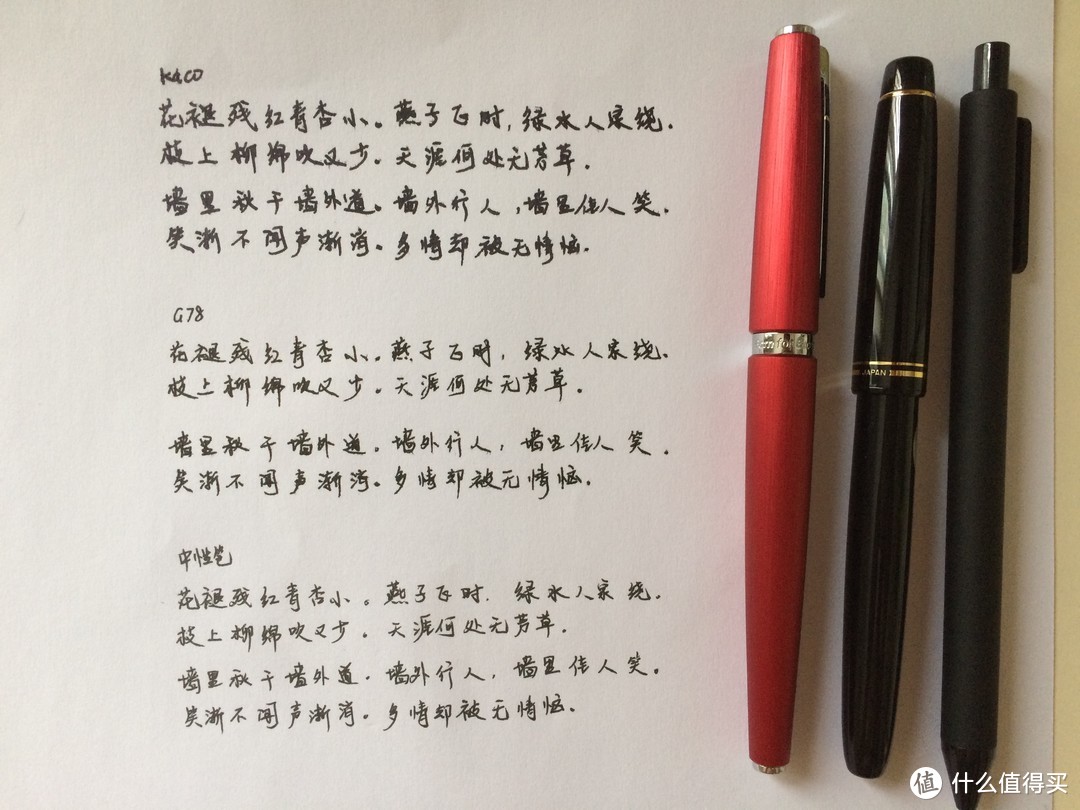 KACO
花褪残红青杏小。燕子飞时,绿水人家绕。
枝上柳绵吹又少。天涯何处无芳草。
墙里秋千墙外道。墙外行人,墙里佳人笑。
笑渐不闻声渐消。多情却被无情恼。
G78
花褪残红青杏小。燕子飞时,绿水人家绕。
枝上柳绵吹又少。天涯何处无芳草。
墙里秋千墙外道。墙外行人,墙里佳人笑。
笑渐不闻声渐消。多情却被无情恼。
中性笔
花褪残红青杏小。燕子飞时.绿水人家绕。
枝上柳绵吹又少.天涯何处无芳草.
墙里秋千墙外道.墙外行人,墙里佳人笑。
笑渐不闻声渐消。多情却被无情恼.
JAPAN
值 什么值得买